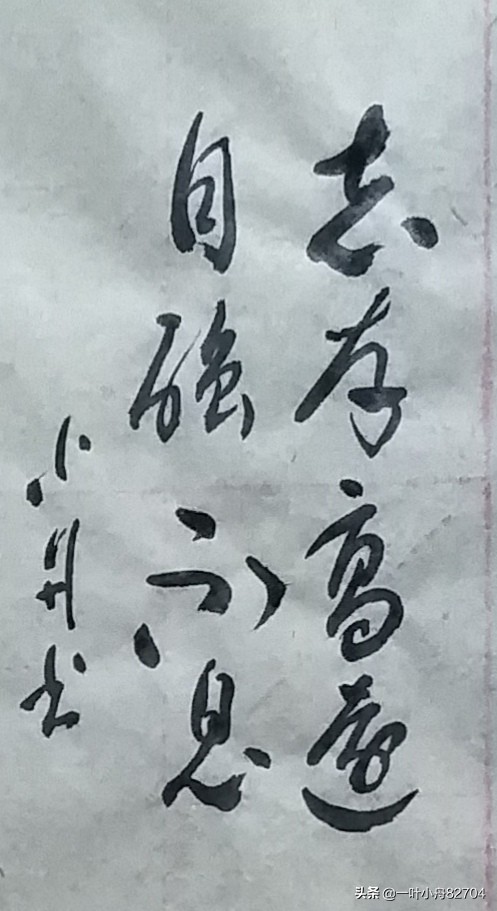 志存高遠
自強不息
小丹书
头条 @一叶小舟82704